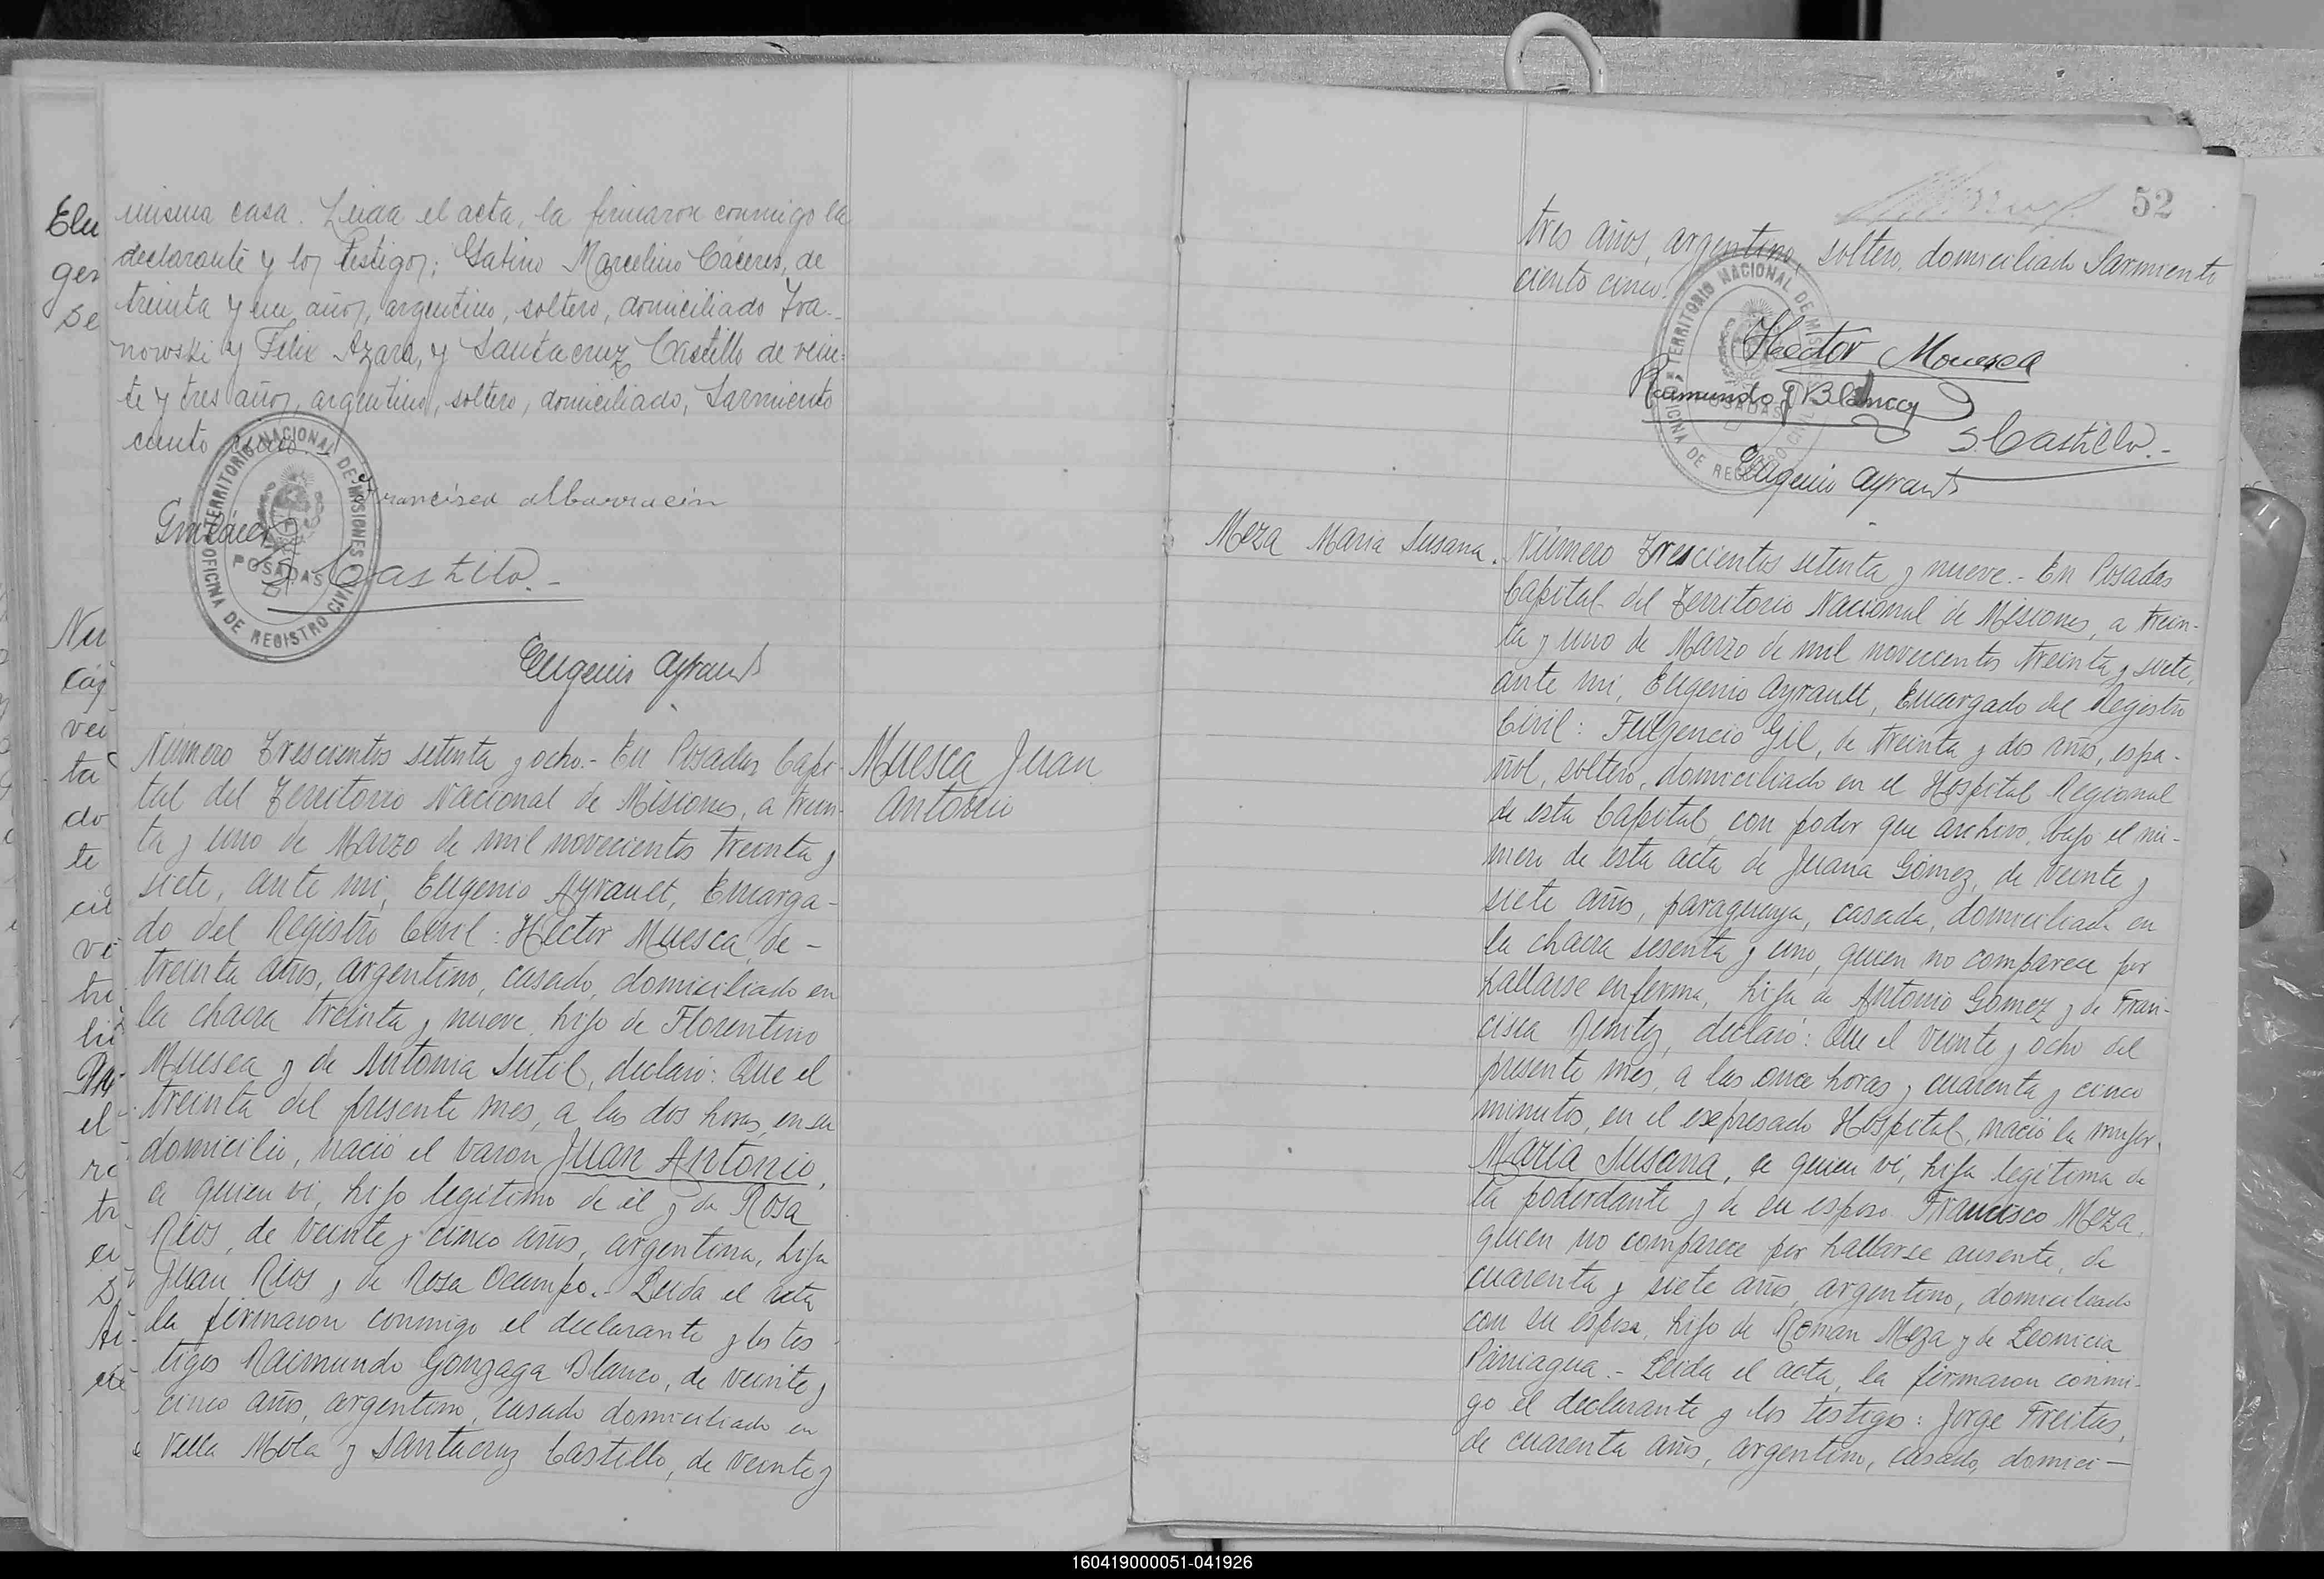 misma casa. Leida el acta, la firmaron conmigo la
declarante y los testigos: Gabino Marcelino Cáceres, de
treinta y un años, argentino, soltero, domiciliado Iva-
nowski y Felix Azara, y Santacruz Castillo de vein-
te y tres años, argentino, soltero, domiciliado, Sarmiento
ciento cinco.-
TERRITORIO NACIONAL DE MISIONES
POSADAS
OFICINA DE REGISTRO CIVIL
Francisca Albarracin
GmCáceres
S. Castillo.-
Eugenio Ayrault
Muesca Juan
Antonio
Número Trescientos setenta y ocho.- En Posadas Capi-
tal del Territorio Nacional de Misiones, a trein-
ta y uno de Marzo de mil novecientos treinta y
siete, ante mi, Eugenio Ayrault, Encarga-
do del Registro Civil: Héctor Muesca, de-
treinta años, argentino, casado, domiciliado en
la chacra treinta y nueve, hijo de Florentino
Muesca y de Antonia Sutil, declaró: Que el
treinta del presente mes, a las dos horas, en su
domicilio, nació el varon Juan Antonio,
a quien vi, hijo legítimo de él y de Rosa
Rios, de veinte y cinco años, argentina, hija
Juan Rios y de Rosa Ocampo.- Leida el acta
la firmaron conmigo el declarante y los tes-
tigos Raimundo Gonzaga Blanco, de veinte y
cinco años, argentino, casado domiciliado en
Villa Mola y Santacruz Castillo, de veinte y
52
tres años, argentino, soltero, domiciliado Sarmiento
ciento cinco.
TERRITORIO NACIONAL DE MISIONES
POSADAS
OFICINA DE REGISTRO CIVIL
Hector Mouesca
Raimundo G Blanco
S. Castillo.-
Eugenio Ayrault
Meza Maria Susana.
Número Trescientos setenta y nueve.- En Posadas
Capital del Territorio Nacional de Misiones, a trein-
ta y uno de Marzo de mil novecientos treinta y siete,
ante mi, Eugenio Ayrault, Encargado del Registro
Civil: Fulgencio Gil, de treinta y dos años, espa-
ñol, soltero, domiciliado en el Hospital Regional
de esta Capital, con poder que archivo, bajo el nú-
mero de esta acta de Juana Gómez, de veinte y
siete años, paraguaya, casada, domiciliada en
la chacra sesenta y uno, quien no comparece por
hallarse enferma, hija de Antonio Gómez y de Fran-
cisca Benitez, declaró: Que el veinte y ocho del
presente mes, a las once horas y cuarenta y cinco
minutos, en el expresado Hospital, nació la mujer
Maria Susana, a quien vi, hija legítima de
la poderdante y de su esposo Francisco Meza,
quien no comparece por hallarse ausente, de
cuarenta y siete años, argentino, domiciliado
con su esposa, hijo de Roman Meza y de Leonicia
Paniagua.- Leida el acta, la firmaron conmi-
go el declarante y los testigos: Jorge Freitas,
de cuarenta años, argentino, casado, domici-
160419000051-041926